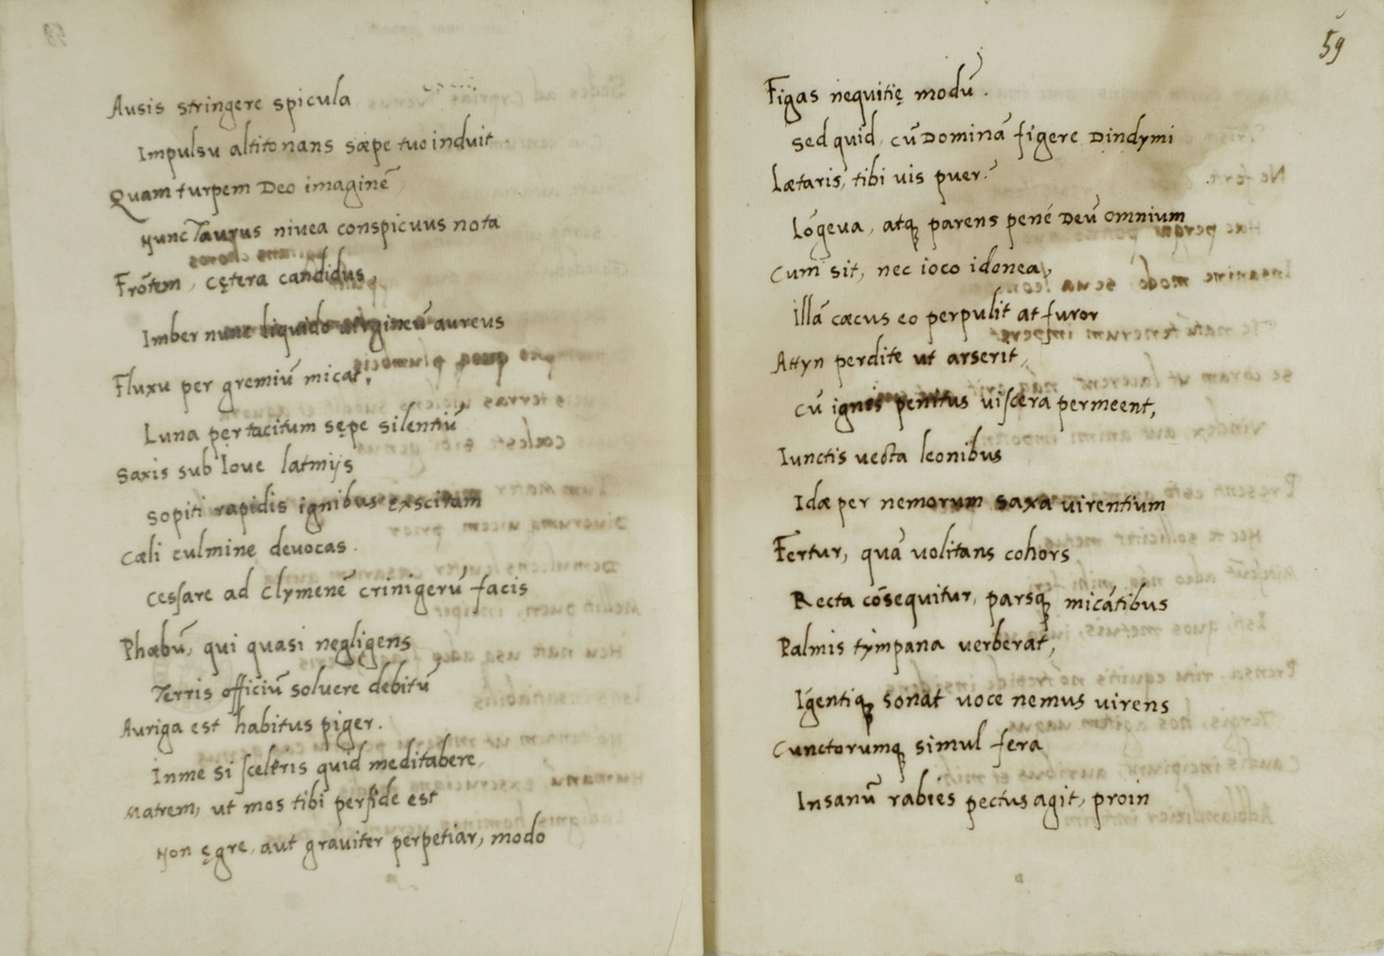 Ausis stringere spicula
Impulsu altitonans sæpe tuo induit
Quam turpem Deo imaginē
Nunc Taurus nivea conspicuus nota
Frōtem, cętera candidus,
Imber nunc liquido virgineū aureus
Fluxu per gremiū micat,
Luna per tacitum sępe silentiū
Saxis sub Iove latmijs
Sopiti rapidis ignibus exscitam
Cæli culmine devocas.
Cessare ad Clymenē crinigerū facis
Phœbū, qui quasi negligens
Terris officiū solvere debitū
Auriga est habitus piger.
In me si sceleris quid meditabere
Matrem, ut mos tibi perfide est
Non ęgre, aut graviter perpetiar, modo
59
Figas nequitię modū.
Sed quid, cū Dominā figere Dindymi
Lætaris, tibi vis puer?
Lōgeva, atq; parens penè Deū omnium
Cum sit, nec ioco idonea,
Illā cæcus eo perpulit at furor
Attyn perdite ut arserit,
Cū ignis penitus viscera permeent,
Iunctis vecta leonibus
Idæ per nemorum saxa virentium
Fertur, quā volitans cohors
Recta cōsequitur, parsq; micātibus
Palmis tympana verberat,
Igentiq; sonat voce nemus virens
Cunctorumq; simul fera
Insanū rabies pectus agit, proin